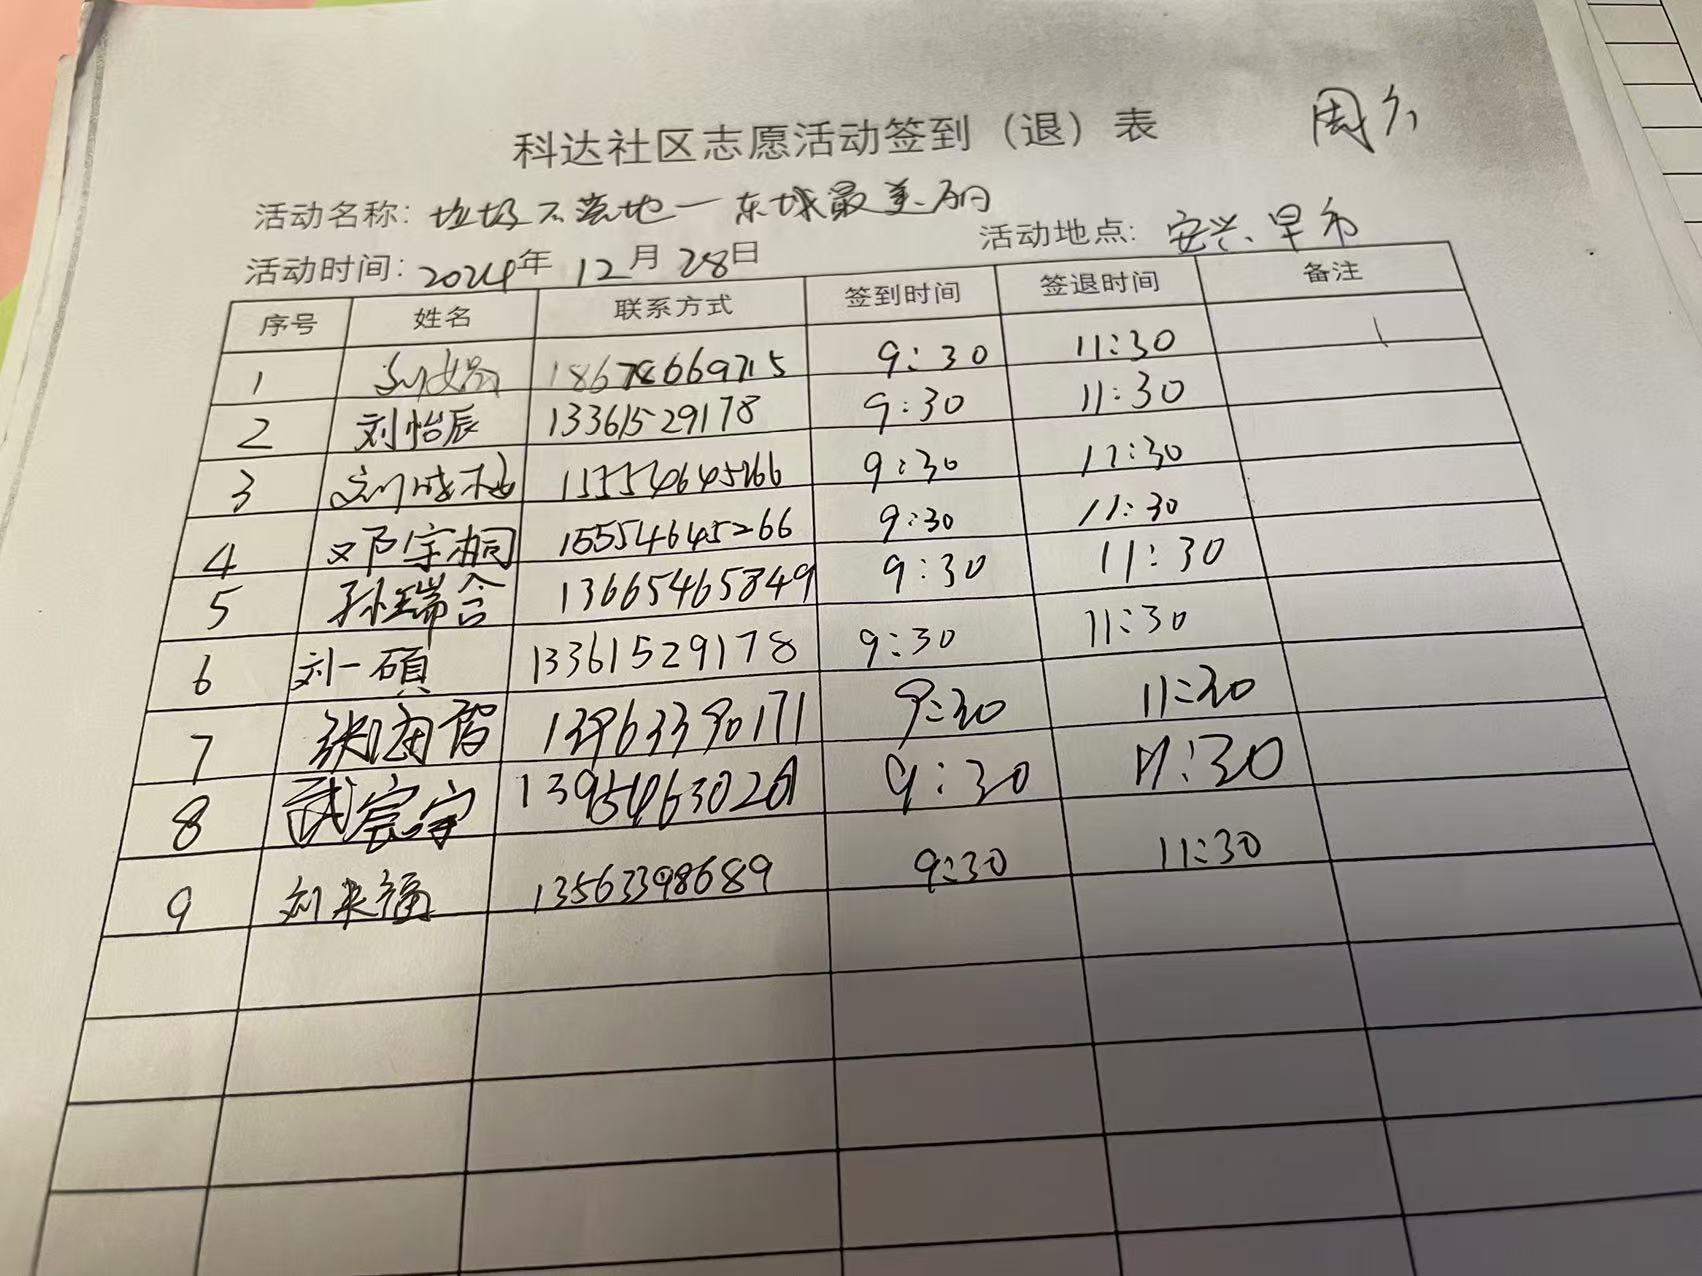 科达社区志愿活动签到（退）表 周六
活动名称：垃圾不落地一东城最美丽
活动时间：2024年 12月 28日 活动地点：安兴、早市
序号 姓名 联系方式 签到时间 签退时间 备注
1 18678669715 9:30 11:30
2 刘怡辰 13361529178 9:30 11:30
3 15554645266 9:30 11:30
4 邓宇桐 15554645266 9:30 11:30
5 孙瑞合 13665465849 9:30 11:30
6 刘一硕 13361529178 9:30 11:30
7 13963390171 9:30 11:30
8 武宸宇 9:30 11:30
9 刘来福 13563398689 9:30 11:30